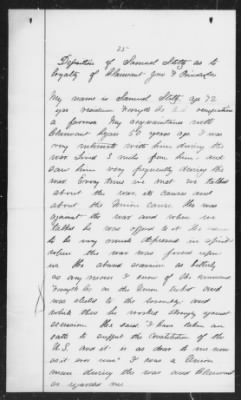 25
Deposition of Samuel Stotz as to
loyalty of Claimant
My name is Samuel Stotz age 72
yrs residence Forsyth Co occupation
a farmer. My acquaintance with
Claimant began 50 years ago. I was
very intimate with him during the
war lived 3 miles from him and
saw him very frequently during the
war Every time we met we talked
about the war, its causes and
about the Union cause He was
against the war and when we
talked he was opposed to it He seemed
to be very much depressed in spirit
when the war was forced upon
us. He abused secession as bitterly
as any man
Forsyth Co on the Union ticket and
was elected to the
while there he worked strongly against
secession He said "I have taken an
oath to support the Constitution of the
U.S. and it is as dear to me now
as it ever was" I was a Union
man during the war and Claimant
so regarded me